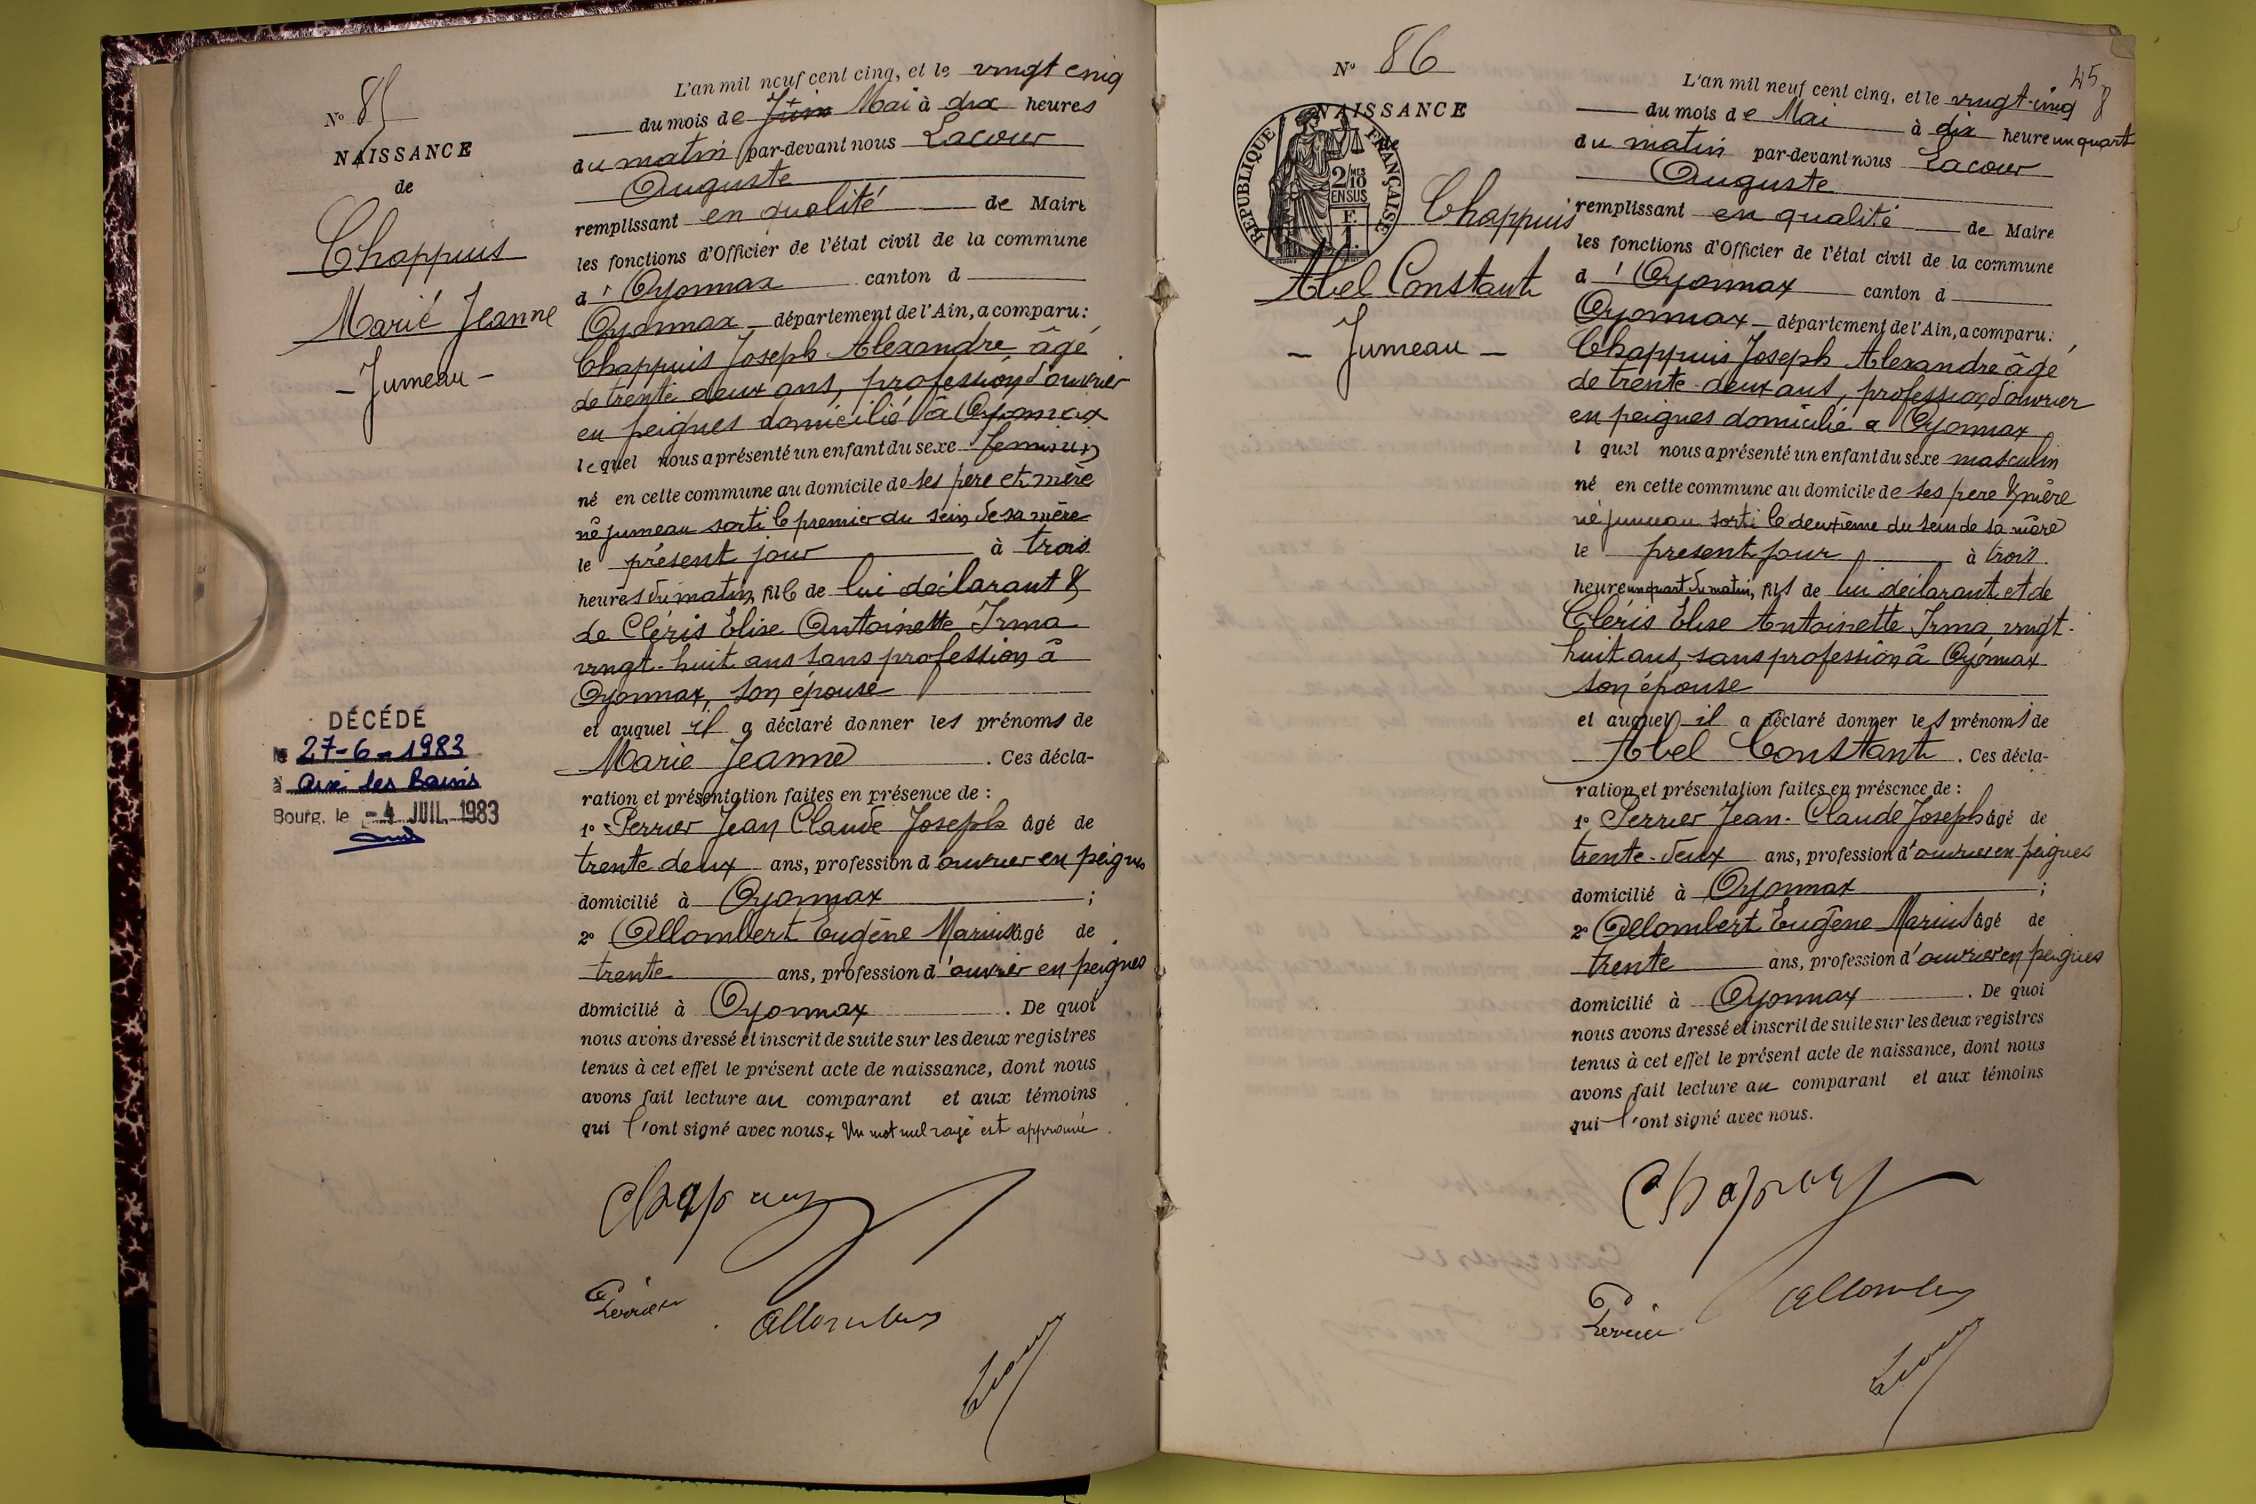 N° 85
NAISSANCE
de
Chappuis
Marie Jeanne
- Jumeau -
DÉCÉDÉ
le 27-6-1983
à Aix les Bains
Bourg, le -4 JUIL. 1983
L'an mil neuf cent cinq, et le vingt cinq
du mois de Juin Mai à dix heures
du matin par-devant nous Lacour
Auguste
remplissant en qualité de Maire
les fonctions d'Officier de l'état civil de la commune
d'Oyonnax canton d
Oyonnax département de l'Ain, a comparu :
Chappuis Joseph Alexandre âgé
de trente deux ans, profession d'ouvrier
en peignes domicilié à Oyonnax
lequel nous a présenté un enfant du sexe feminin
né en cette commune au domicile de ses pere et mère
né jumeau sorti le premier du sein de sa mère
le présent jour à trois
heures du matin, fille de lui déclarant &
de Cléris Elise Antoinette Irma
vingt-huit ans sans profession à
Oyonnax, son épouse
et auquel il a déclaré donner les prénoms de
Marie Jeanne . Ces décla-
ration et présentation faites en présence de :
1° Perrier Jean Claude Joseph âgé de
trente deux ans, profession d'ouvrier en peignes
domicilié à Oyonnax ;
2° Allombert Eugène Marius âgé de
trente ans, profession d'ouvrier en peignes
domicilié à Oyonnax . De quoi
nous avons dressé et inscrit de suite sur les deux registres
tenus à cet effet le présent acte de naissance, dont nous
avons fait lecture au comparant et aux témoins
qui l'ont signé avec nous. Un mot nul rayé est approuvé.
Chappuis
Perrier Allombert
Lacour
N° 86
NAISSANCE
de
RÉPUBLIQUE FRANÇAISE
2/10 MES
EN SUS
Chappuis
Abel Constant
- Jumeau -
45
8
L'an mil neuf cent cinq, et le vingt-cinq
du mois de Mai à dix heure un quart
du matin par-devant nous Lacour
Auguste
remplissant en qualité de Maire
les fonctions d'Officier de l'état civil de la commune
d'Oyonnax canton d
Oyonnax département de l'Ain, a comparu :
Chappuis Joseph Alexandre âgé
de trente-deux ans, profession d'ouvrier
en peignes domicilié a Oyonnax
l quel nous a présenté un enfant du sexe masculin
né en cette commune au domicile de ses pere & mère
né jumeau sorti le deuxième du sein de sa mère
le présent jour à trois
heure un quart du matin, fils de lui déclarant et de
Cléris Elise Antoinette Irma, vingt-
huit ans, sans profession à Oyonnax
son épouse
et auquel il a déclaré donner les prénoms de
Abel Constant . Ces décla-
ration et présentation faites en présence de :
1° Perrier Jean-Claude Joseph âgé de
trente-deux ans, profession d'ouvrier en peignes
domicilié à Oyonnax ;
2° Allombert Eugène Marius âgé de
trente ans, profession d'ouvrier en peignes
domicilié à Oyonnax . De quoi
nous avons dressé et inscrit de suite sur les deux registres
tenus à cet effet le présent acte de naissance, dont nous
avons fait lecture au comparant et aux témoins
qui l'ont signé avec nous.
Chappuis
Perrier Allombert
Lacour